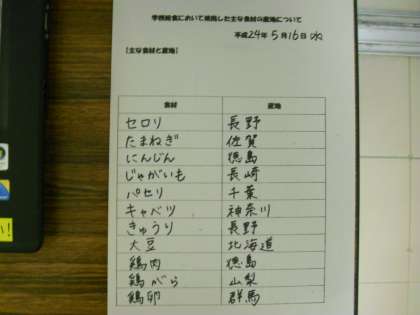 学校給食において使用した主な食材の産地について
平成24年5月16日(水)
【主な食材と産地】
食材 産地
セロリ 長野
たまねぎ 佐賀
にんじん 徳島
じゃがいも 長崎
パセリ 千葉
キャベツ 神奈川
きゅうり 長野
大豆 北海道
鶏肉 徳島
鶏がら 山梨
鶏卵 群馬
い!